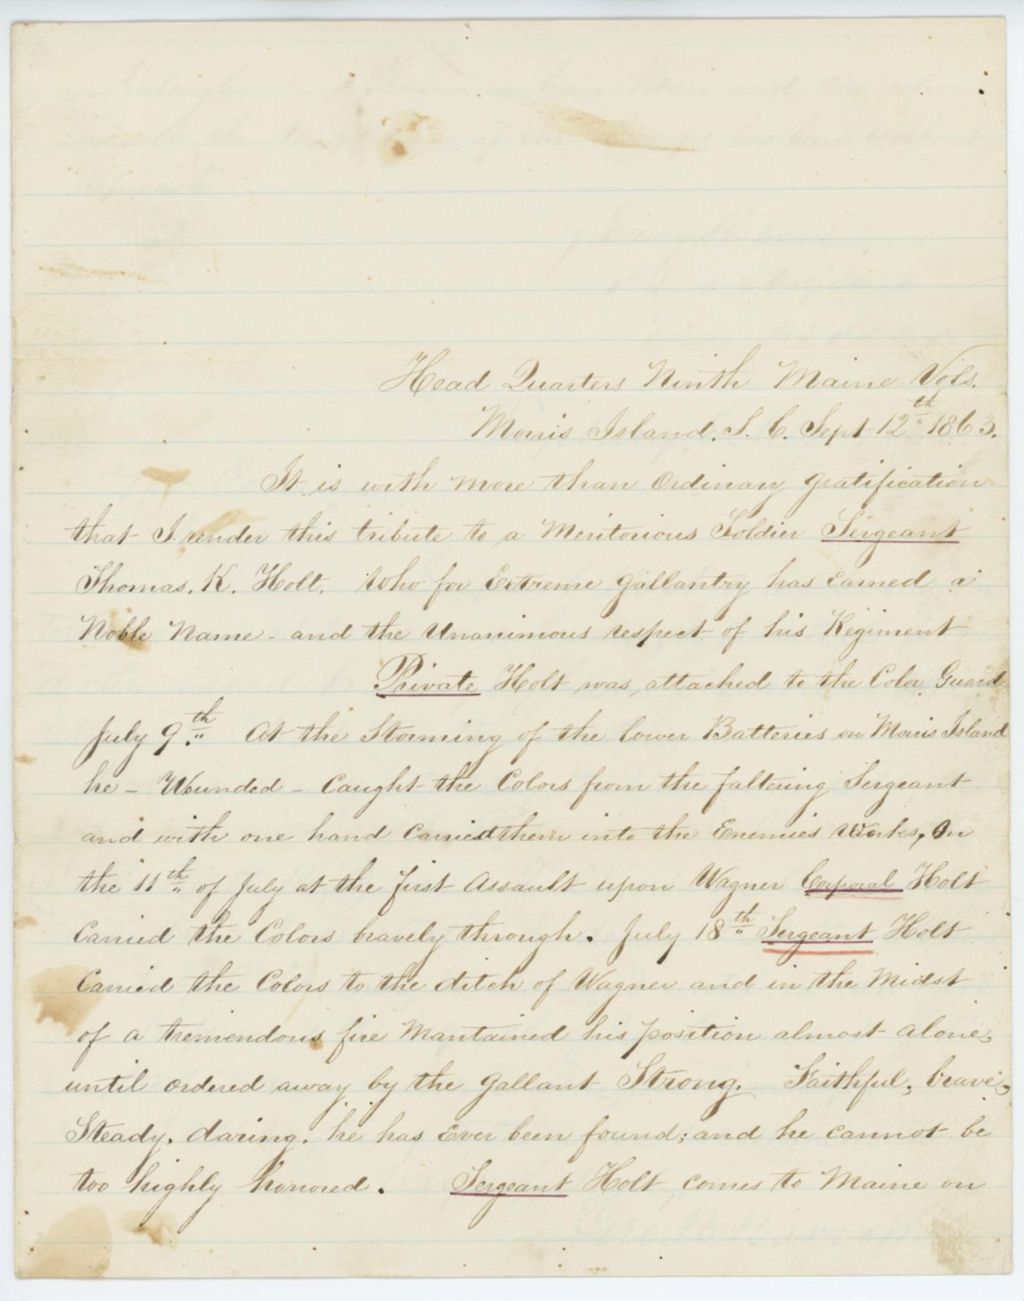 Head Quarters Ninth Maine Vols.
Morris Island. S. C. Sept 12th 1863.
It is with more than Ordinary gratification
that I render this tribute to a Meritorious Soldier Sergeant
Thomas. K. Holt. Who for Extreme gallantry has Earned a
Noble Name - and the Unanimous respect of his Regiment
Private Holt was attached to the Color Guard
July 9th At the Storming of the lower Batteries on Morris Island
he - Wounded - Caught the Colors from the faltering Sergeant
and with one hand Carried them into the Enemies Works, On
the 11th of July at the first Assault upon Wagner Corporal Holt
Carried the Colors bravely through. July 18th Sergeant Holt
Carried the Colors to the ditch of Wagner and in the Midst
of a tremendous fire Mantained his position almost alone,
until ordered away by the Gallant Strong. Faithful, brave,
Steady, daring, he has Ever been found; and he cannot be
too highly honored. Sergeant Holt comes to Maine on